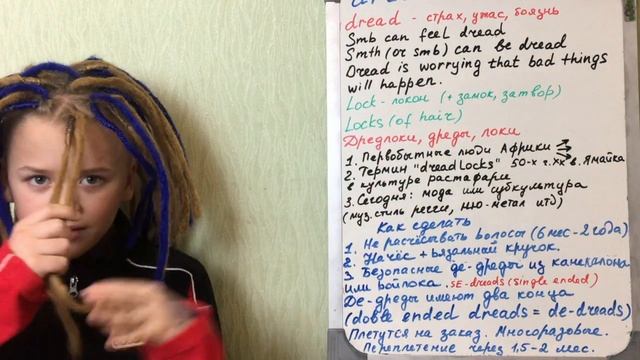 dread - страх, ужас, боязнь
Smb can feel dread
Smth (or smb) can be dread
Dread is worrying that bad things
will happen.
Lock - локон (+ замок, затвор)
Locks (of hair)
Дредлоки, дреды, локи
1. Первобытные люди Африки
2. Термин "dreadlocks" 50-х г. XX в. Ямайка
в культуре растафари
3. Сегодня: мода или субкультура
(муз. стиль регги, ню-метал итд)
Как сделать
1. Не расчёсывать волосы (6 мес - 2 года)
2. Начёс + вязальный крючок.
3 Безопасные де-дреды из канекалона
или войлока. SE-dreads (single ended)
Де-дреды имеют два конца
(doble ended dreads = de-dreads)
Плетутся на заказ. Многоразовые.
Переплетение через 1,5-2 мес.